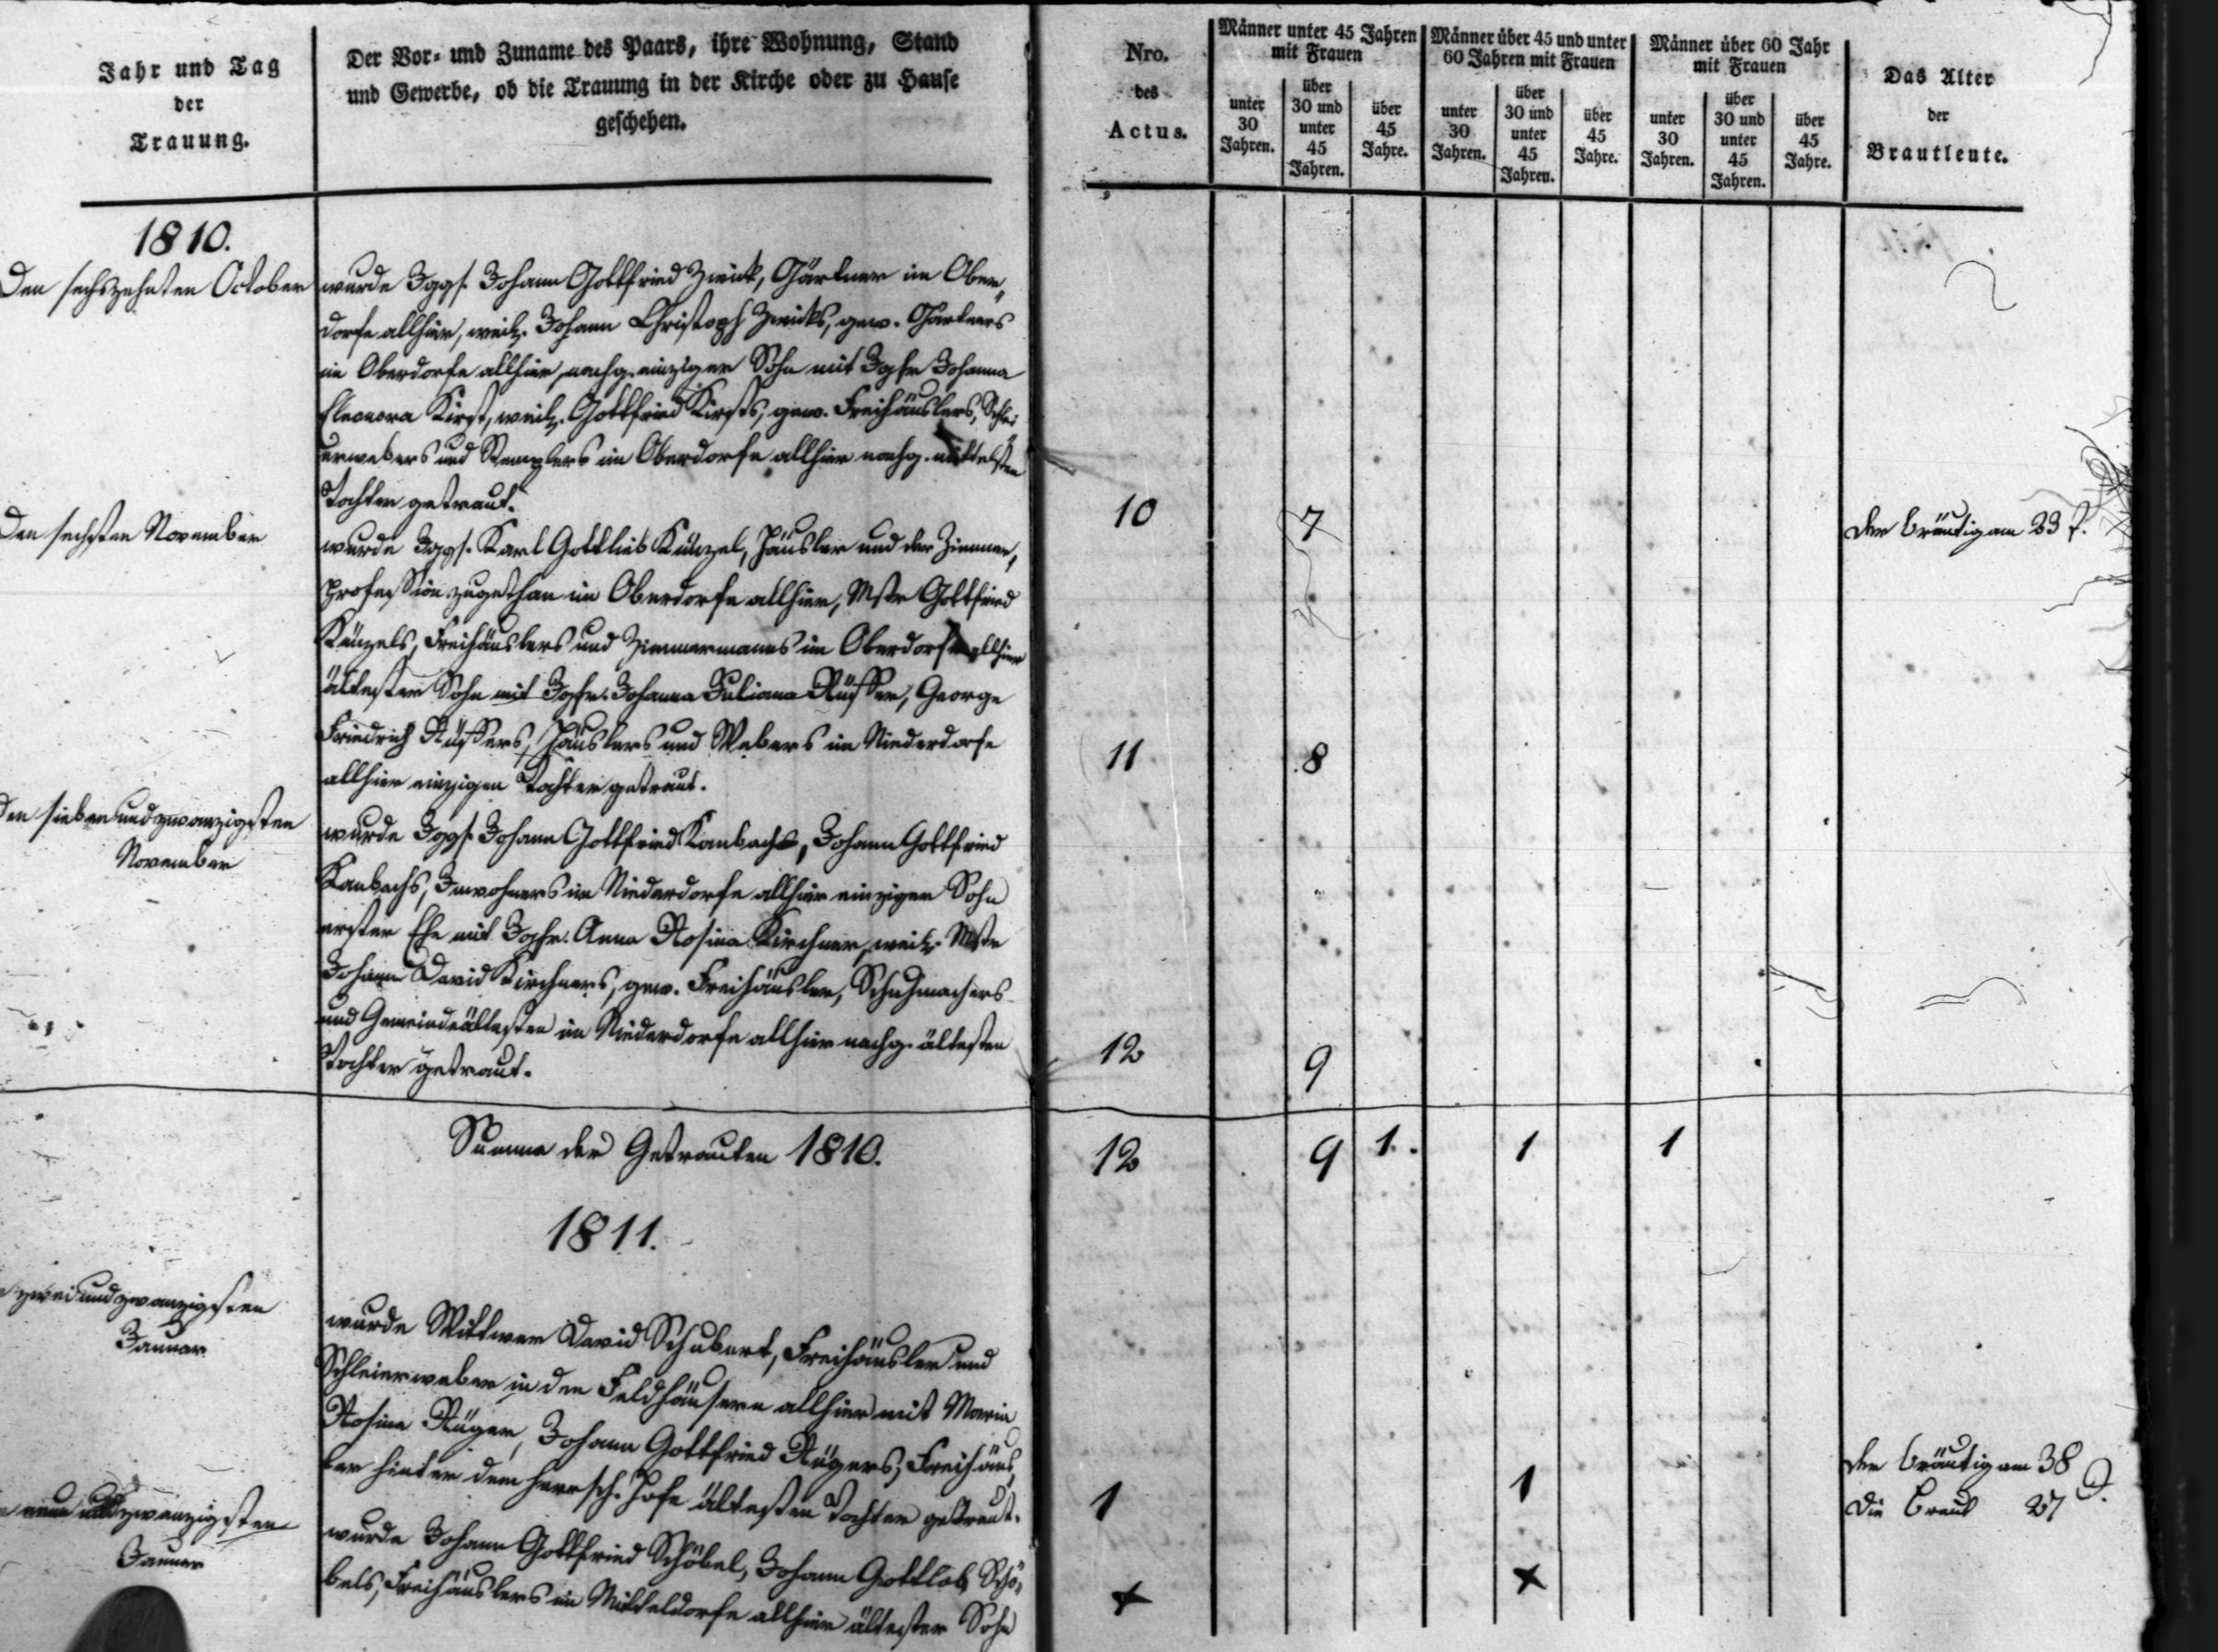 Jahr und Tag
der
Trauung.
Der Vor- und Zuname des Paars, ihre Wohnung, Stand
und Gewerbe, ob die Trauung in der Kirche oder zu Hause
geschehen.
Nro.
des
Actus.
Männer unter 45 Jahren
mit Frauen
unter
30
Jahren.
über
30 und
unter
45
Jahren.
über
45
Jahre.
Männer über 45 und unter
60 Jahren mit Frauen
unter
30
Jahren.
über
30 und
unter
45
Jahren.
über
45
Jahre.
Männer über 60 Jahr
mit Frauen
unter
30
Jahren.
über
30 und
unter
45
Jahren.
über
45
Jahre.
Das Alter
der
Brautleute.
1810.
Den sechszehnten October
wurde Jggs. Johann Gottfried Zwick, Gärtner im Ober-
dorfe allhier, weil. Johann Christoph Zwicks, gew. Gärtners
im Oberdorfe allhier, nachg. einziger Sohn mit Jgfr Johanna
Eleonora Kirst, weil. Gottfried Kirsts, gew. Freihäuslers, Schlei-
erwebers und im Oberdorfe allhier nachg. mittelsten
Tochter getraut.
10 7 der Bräutigam 23 J.
Den sechsten November
wurde Jggs. Karl Gottlieb Künzel, Häusler und der Zimmer-
profession zugethan im Oberdorfe allhier, Mstr Gottfried
Künzels, Freihäuslers und Zimmermanns im Oberdorfe allhier
ältester Sohn mit Jgfr. Johanna Juliana Rüffer, George
Friedrich Rüffers, Häuslers und Webers im Niederdorfe
allhier einzigen Tochter getraut.
11 8
Den siebenundzwanzigsten
November
wurde Jggs. Johann Gottfried Kanbach, Johann Gottfried
Kanbachs, Inwohners im Niederdorfe allhier einziger Sohn
erster Ehe mit Jgfr. Anna Rosina Kirchner, weil. Mstr
Johann David Kirchners, gew. Freihäusler, Schuhmachers
und Gemeindeältesten im Niederdorfe allhier nachg. ältesten
Tochter getraut.
12 9
Summa der Getrauten 1810.
12 9 1. 1 1
1811.
zweiundzwanzigsten
Januar
wurde Wittwer David Schubert, Freihäusler und
Schleierweber in den Feldhäusern allhier mit Maria
Rosina Rüger, Johann Gottfried Rügers, Freihäus-
ler hinter dem herrsch. Hofe ältesten Tochter getraut.
1 1 der Bräutigam 38 J.
die Braut 27
neun und zwanzigsten
Januar
wurde Johann Gottfried Schöbel, Johann Gottlob Schö-
bels, Freihäuslers im Mitteldorfe allhier ältester Sohn